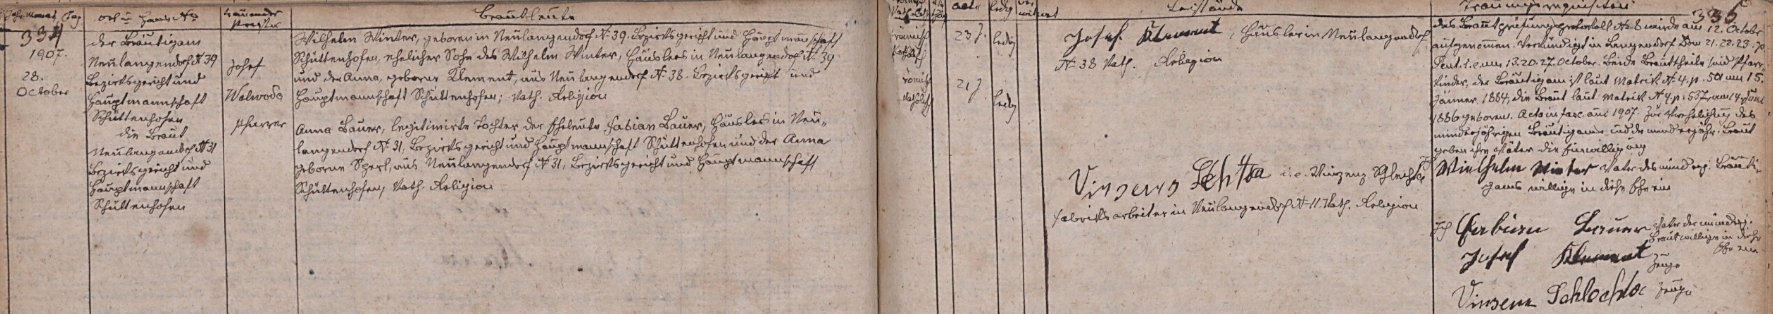 Jahr Monat Tag
Ort u Haus No
Brautleute
Beistände
334
1907.
28.
October
der Bräutigam
Neulangendorf N 39
Bezirksgericht und
Hauptmannschaft
Schüttenhofen
die Braut
Neulangendorf N 31
Bezirksgericht und
Hauptmannschaft
Schüttenhofen
Josef
Walwoda
Pfarrer
Wilhelm Winter, geboren in Neulangendorf N. 39. Bezirksgericht und Hauptmannschaft
Schüttenhofen, ehelicher Sohn des Wilhelm Winter, Häuslers in Neulangendorf N. 39
und der Anna, geborner Klement, aus Neulangendorf N. 38. Bezirksgericht und
Hauptmannschaft Schüttenhofen; kath. Religion
Anna Bauer, legitimirte Tochter der Eheleute Fabian Bauer, Häuslers in Neu-
langendorf N. 31, Bezirksgericht und Hauptmannschaft Schüttenhofen und der Anna
geborne Sperl, aus Neulangendorf N. 31, Bezirksgericht und Hauptmannschaft
Schüttenhofen, kath. Religion
römisch
katholisch
23 J. ledig
römisch
katholisch
21 J. ledig
Josef Klement, Häusler in Neulangendorf
N. 38 kath. Religion
Vinzenz
Fabriksarbeiter in Neulangendorf N. 11. kath. Religion
335
das Brautprüfungsprotokoll wurde am 12. October
aufgenommen. Verkündigt in Langendorf Dom. 21. 22. 23. p.
Pent. i. e. am 13. 20. 27. October. Beide Brauttheile sind Pfarr-
kinder, der Bräutigam ist laut Matrik N 4 p. 501 am 15.
Jänner 1884, die Braut laut Matrik N 4 p. 537 am 14. Juni
1886 geboren. Acta in fasc. anni 1907. Zur Verehelichung des
minderjährigen Bräutigams und der minderjähr. Braut
geben ihre Väter die Einwilligung
Wielhelm Winter Vater des minderj. Bräuti-
gams willige in diese Ehe ein
Ich Fabian Bauer Vater der minderj.
Braut willige in diese
Ehe ein
Josef Klement Zeuge
Vinzenz Schlechta Zeuge